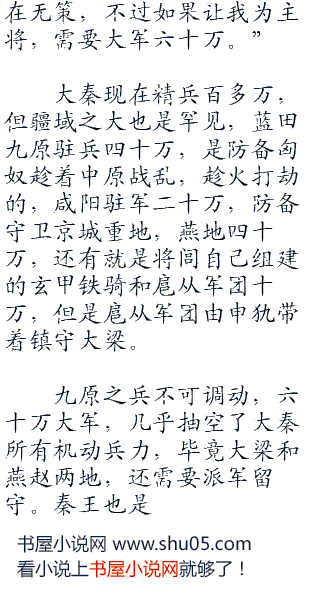 在无策，不过如果让我为主
将，需要大军六十万。”
大秦现在精兵百多万，
但疆域之大也是罕见，蓝田
九原驻兵四十万，是防备匈
奴趁着中原战乱，趁火打劫
的，咸阳驻军二十万，防备
守卫京城重地，燕地四十
万，还有就是将闾自己组建
的玄甲铁骑和扈从军团十
万，但是扈从军团由申犰带
着镇守大梁。
九原之兵不可调动，六
十万大军，几乎抽空了大秦
所有机动兵力，毕竟大梁和
燕赵两地，还需要派军留
守。秦王也是
书屋小说网 www.shu05.com
看小说上书屋小说网就够了！